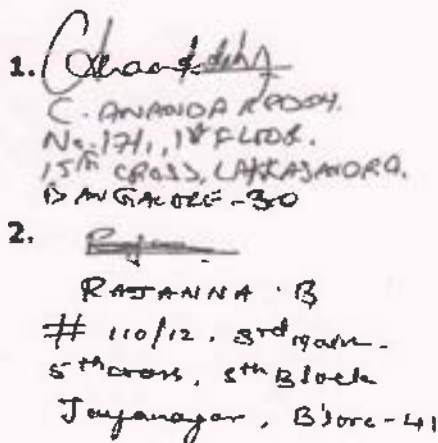 1.
C. ANANDA REDDY.
No. 171, 1st FLOOR.
15th CROSS, LAKKASANDRA.
BANGALORE-30
2.
RAJANNA.B
# 110/12, 3rd main.
5th cross, 8th Block
Jayanagar, B'lore-41